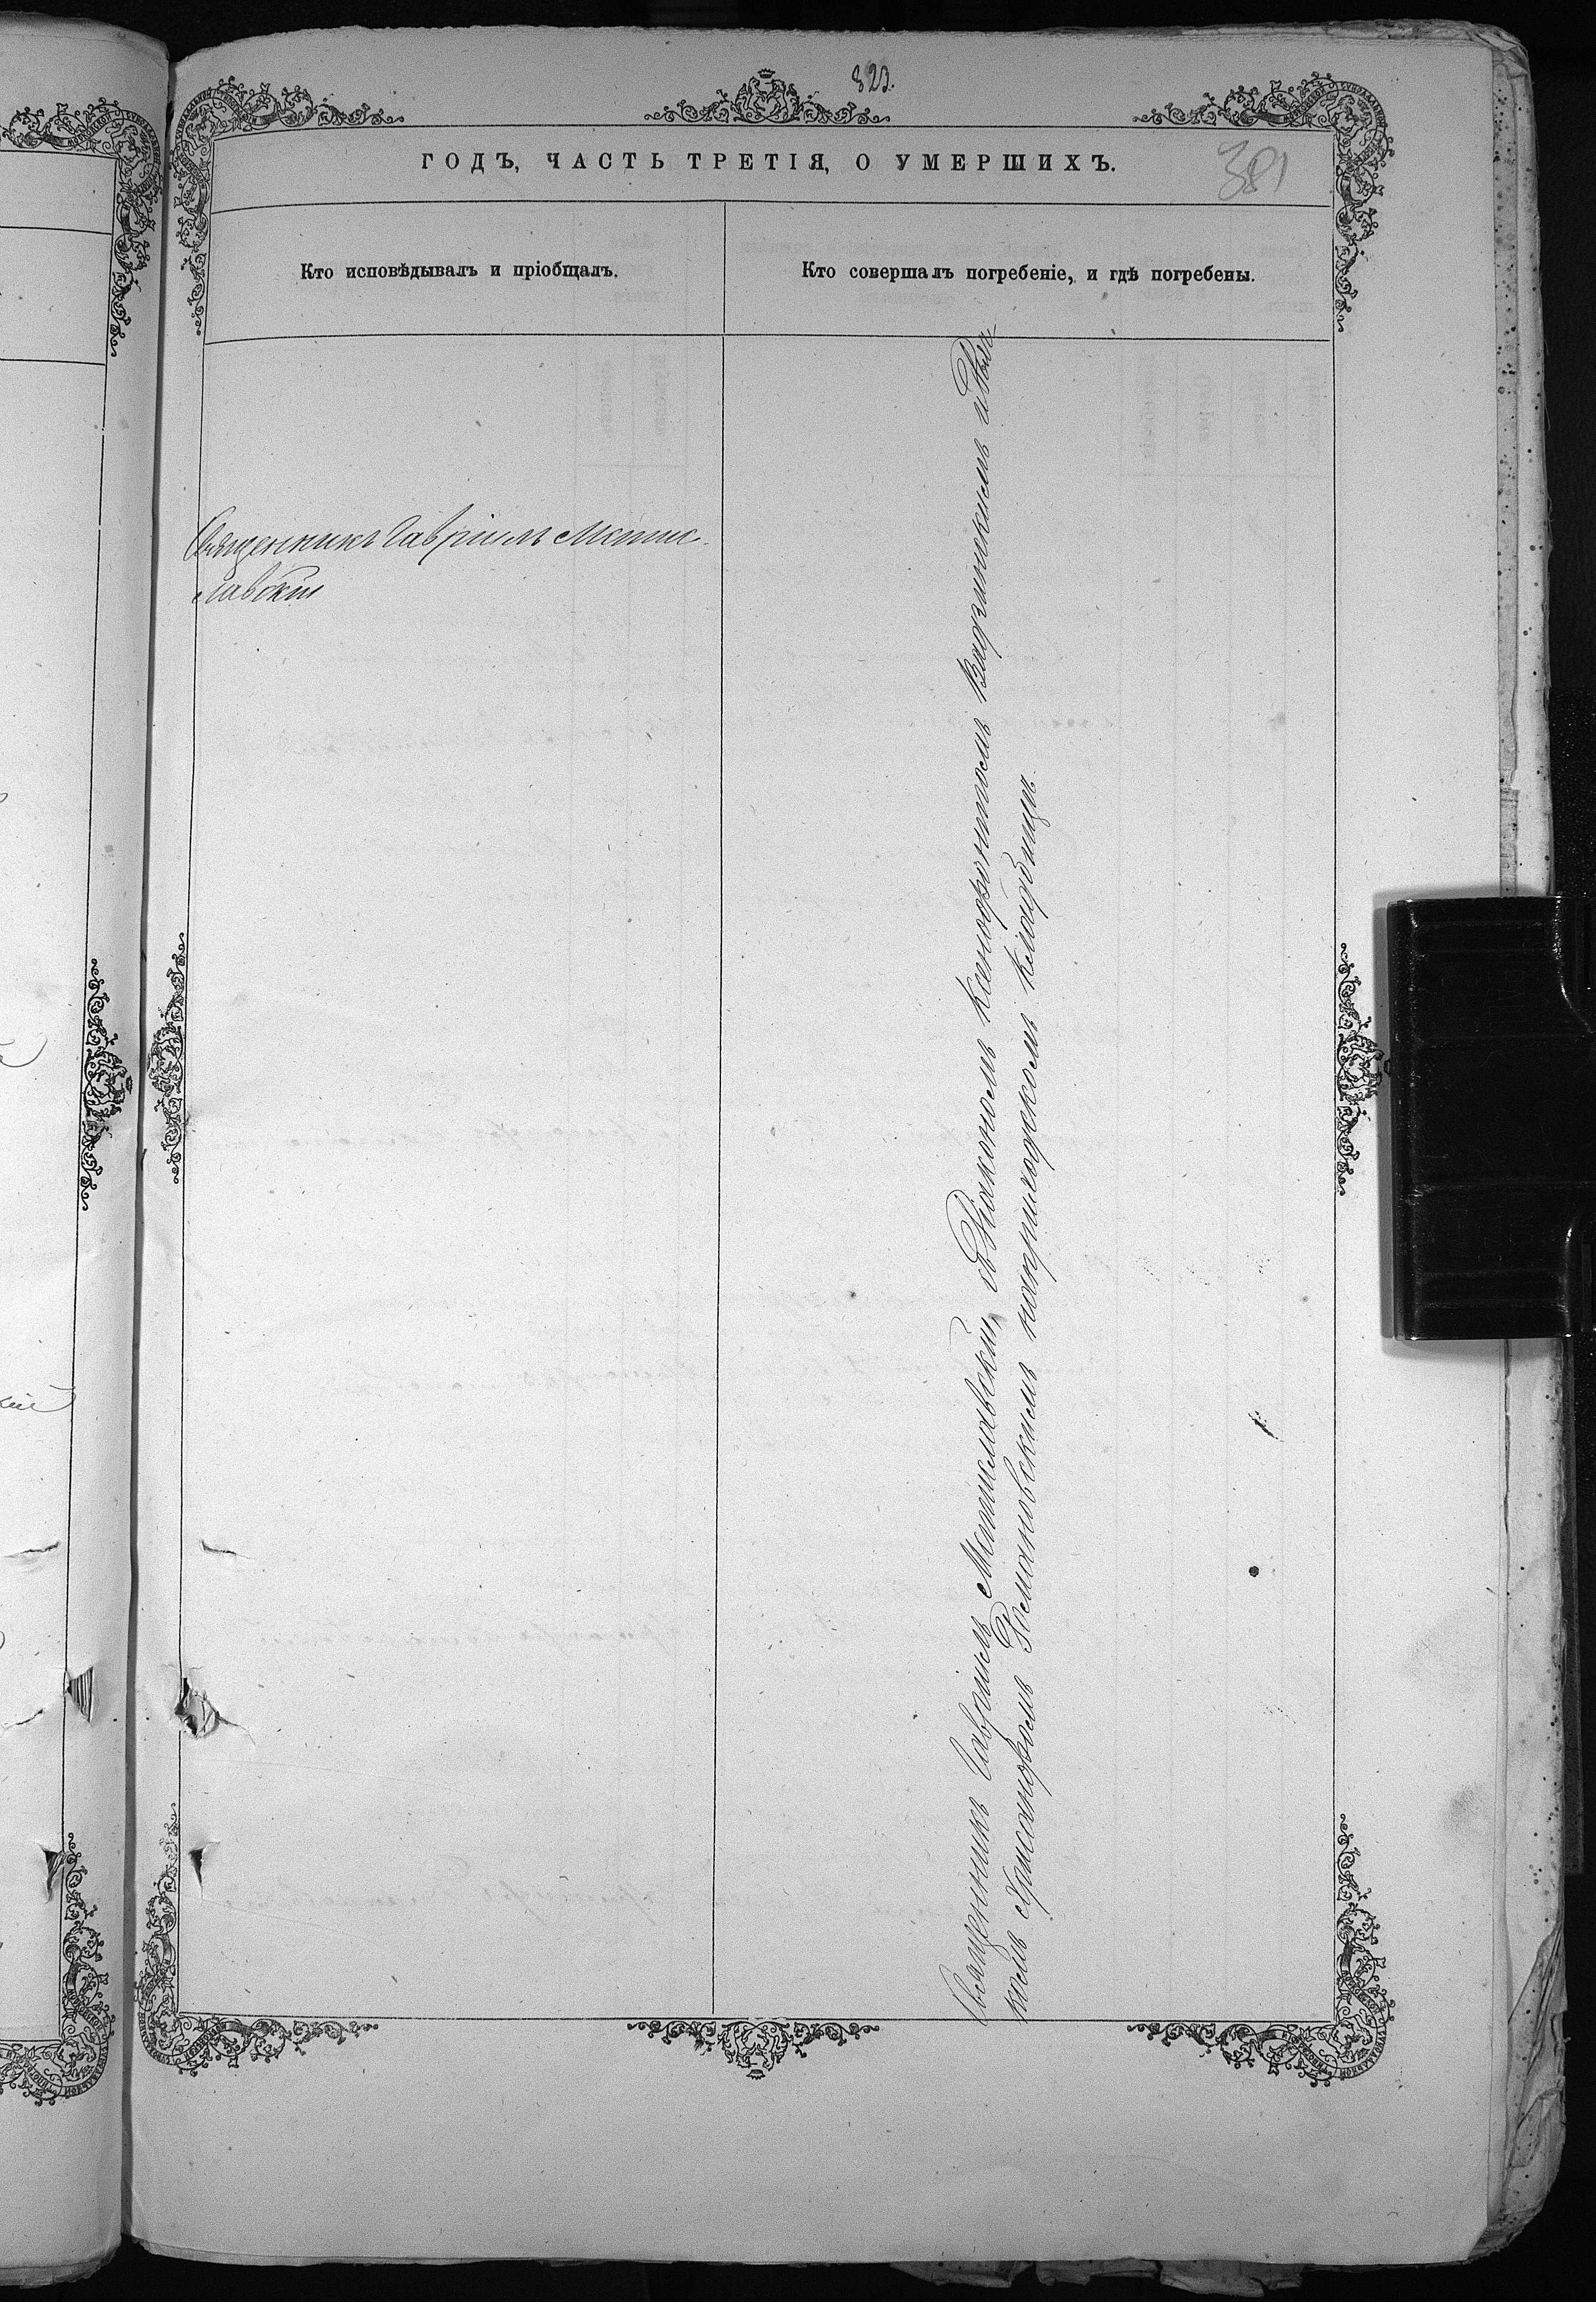 323.
381
ГОДЪ, ЧАСТЬ ТРЕТІЯ, О УМЕРШИХЪ.
Кто исповѣдывалъ и пріобщалъ.
Кто совершалъ погребеніе, и гдѣ погребены.
Священникъ Гавріилъ Мстис-
лавскій
Священникъ Гавріилъ Мстиславскій, съ Діакономъ Ксенофонтомъ Кадзинскимъ и Дьяч-
комъ Хрисанфомъ Романовскимъ на приходскомъ кладбищѣ.